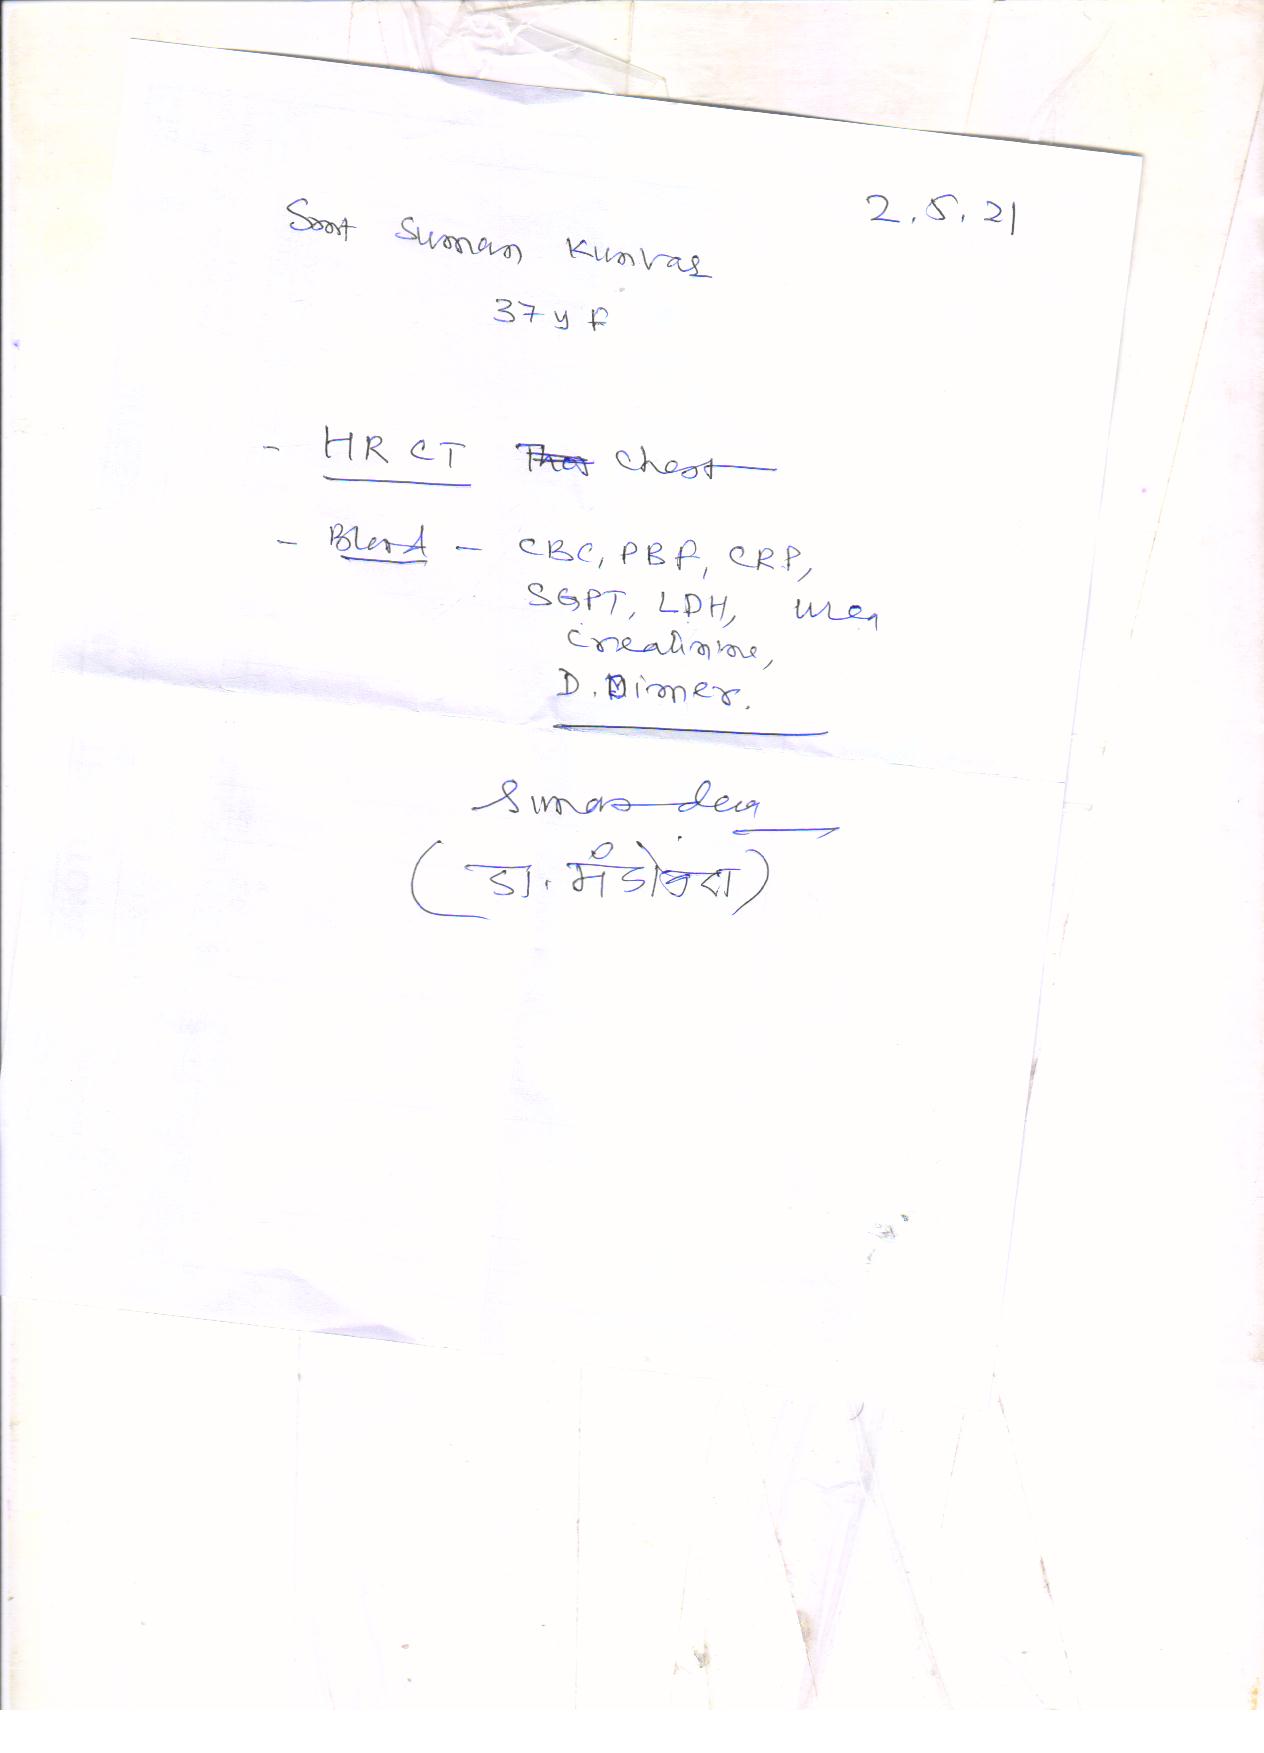 2.5.21
Smt Suman Kunvar
37 y F
- HRCT Chest
- Blood - CBC, PBF, CRP,
SGPT, LDH, urea
Creatinine,
D. Dimer.
(डा.